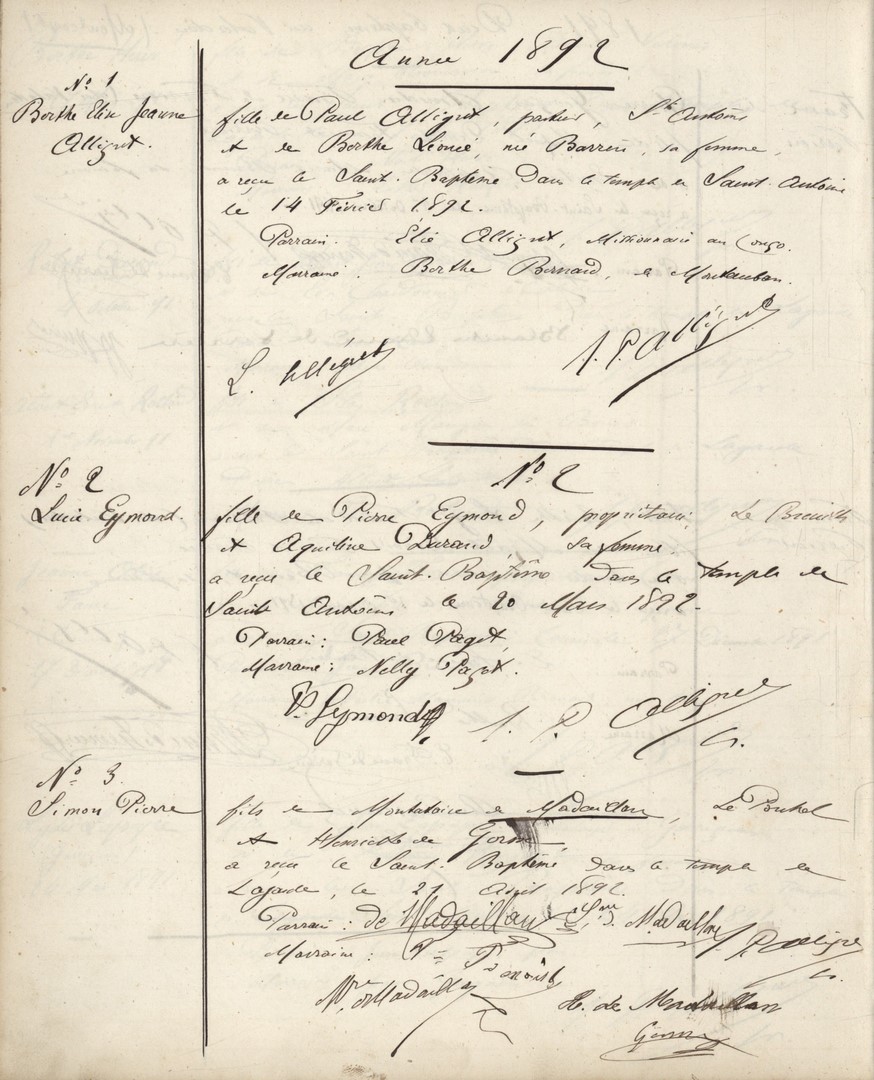 Année 1892
Nº 1
Berthe Elise Jeanne
Allégret.
fille de Paul Allégret, pasteur, St Antoine
et de Berthe Léonie, née Barren, sa femme,
a reçu le Saint-Baptême dans le temple de Saint-Antoine
le 14 Février 1892.
Parrain. Elie Allégret, Missionnaire au Congo.
Marraine. Berthe Bernard, de Montauban.
L. Allégret
J. P. Allégret
Nº 2
Lucie Eymond.
Nº 2
fille de Pierre Eymond, propriétaire, Le Breuilh
et Aquiline Durand, sa femme.
a reçu le Saint-Baptême dans le temple de
Saint Antoine le 20 Mars 1892.
Parrain: Paul Pagot,
Marraine: Nelly Pagot.
P. Eymond
J. P. Allégret
Nº 3
Simon Pierre
fils de Montataire de Madaillan, Le Pouhel
et Henriette de
a reçu le Saint-Baptême dans le temple de
Lagarde, le 27 Avril 1892.
Parrain: de Madaillan Madaillan
J. P. Allégret
Marraine:
de Madaillan
H. de Madaillan